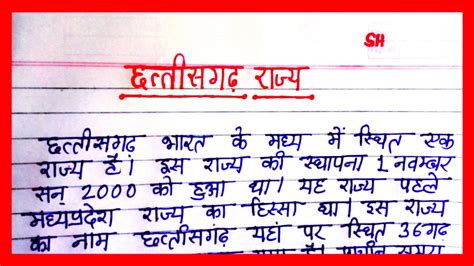 SH
छत्तीसगढ़ राज्य
छत्तीसगढ़ भारत के मध्य में स्थित एक
राज्य है। इस राज्य की स्थापना 1 नवम्बर
सन् 2000 को हुआ था। यह राज्य पहले
मध्यप्रदेश राज्य का हिस्सा था। इस राज्य
का नाम छत्तीसगढ़ यहां पर स्थित 36गढ़